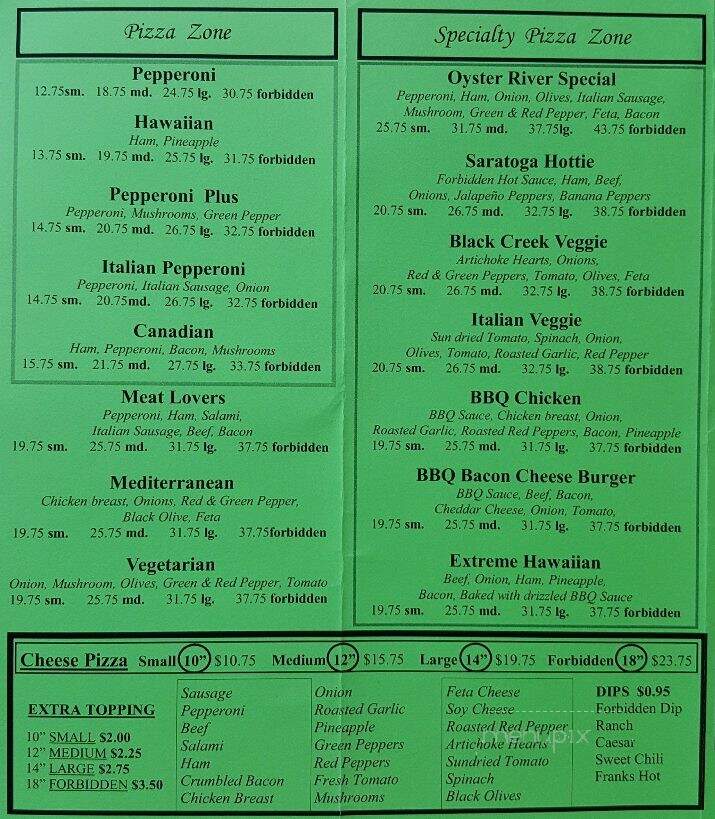 Pizza Zone
Pepperoni
12.75sm. 18.75 md. 24.75 lg. 30.75 forbidden
Hawaiian
Ham, Pineapple
13.75 sm. 19.75 md. 25.75 lg. 31.75 forbidden
Pepperoni Plus
Pepperoni, Mushrooms, Green Pepper
14.75 sm. 20.75 md. 26.75 lg. 32.75 forbidden
Italian Pepperoni
Pepperoni, Italian Sausage, Onion
14.75 sm. 20.75md. 26.75 lg. 32.75 forbidden
Canadian
Ham, Pepperoni, Bacon, Mushrooms
15.75 sm. 21.75 md. 27.75 lg. 33.75 forbidden
Meat Lovers
Pepperoni, Ham, Salami,
Italian Sausage, Beef, Bacon
19.75 sm. 25.75 md. 31.75 lg. 37.75 forbidden
Mediterranean
Chicken breast, Onions, Red & Green Pepper,
Black Olive, Feta
19.75 sm. 25.75 md. 31.75 lg. 37.75forbidden
Vegetarian
Onion, Mushroom, Olives, Green & Red Pepper, Tomato
19.75 sm. 25.75 md. 31.75 lg. 37.75 forbidden
Specialty Pizza Zone
Oyster River Special
Pepperoni, Ham, Onion, Olives, Italian Sausage,
Mushroom, Green & Red Pepper, Feta, Bacon
25.75 sm. 31.75 md. 37.75lg. 43.75 forbidden
Saratoga Hottie
Forbidden Hot Sauce, Ham, Beef,
Onions, Jalapeño Peppers, Banana Peppers
20.75 sm. 26.75 md. 32.75 lg. 38.75 forbidden
Black Creek Veggie
Artichoke Hearts, Onions,
Red & Green Peppers, Tomato, Olives, Feta
20.75 sm. 26.75 md. 32.75 lg. 38.75 forbidden
Italian Veggie
Sun dried Tomato, Spinach, Onion,
Olives, Tomato, Roasted Garlic, Red Pepper
20.75 sm. 26.75 md. 32.75 lg. 38.75 forbidden
BBQ Chicken
BBQ Sauce, Chicken breast, Onion,
Roasted Garlic, Roasted Red Peppers, Bacon, Pineapple
19.75 sm. 25.75 md. 31.75 lg. 37.75 forbidden
BBQ Bacon Cheese Burger
BBQ Sauce, Beef, Bacon,
Cheddar Cheese, Onion, Tomato,
19.75 sm. 25.75 md. 31.75 lg. 37.75 forbidden
Extreme Hawaiian
Beef, Onion, Ham, Pineapple,
Bacon, Baked with drizzled BBQ Sauce
19.75 sm. 25.75 md. 31.75 lg. 37.75 forbidden
Cheese Pizza Small 10" $10.75 Medium 12" $15.75 Large 14" $19.75 Forbidden 18" $23.75
EXTRA TOPPING
10" SMALL $2.00
12" MEDIUM $2.25
14" LARGE $2.75
18" FORBIDDEN $3.50
Sausage
Pepperoni
Beef
Salami
Ham
Crumbled Bacon
Chicken Breast
Onion
Roasted Garlic
Pineapple
Green Peppers
Red Peppers
Fresh Tomato
Mushrooms
Feta Cheese
Soy Cheese
Roasted Red Pepper
Artichoke Hearts
Sundried Tomato
Spinach
Black Olives
DIPS $0.95
Forbidden Dip
Ranch
Caesar
Sweet Chili
Franks Hot
menupix